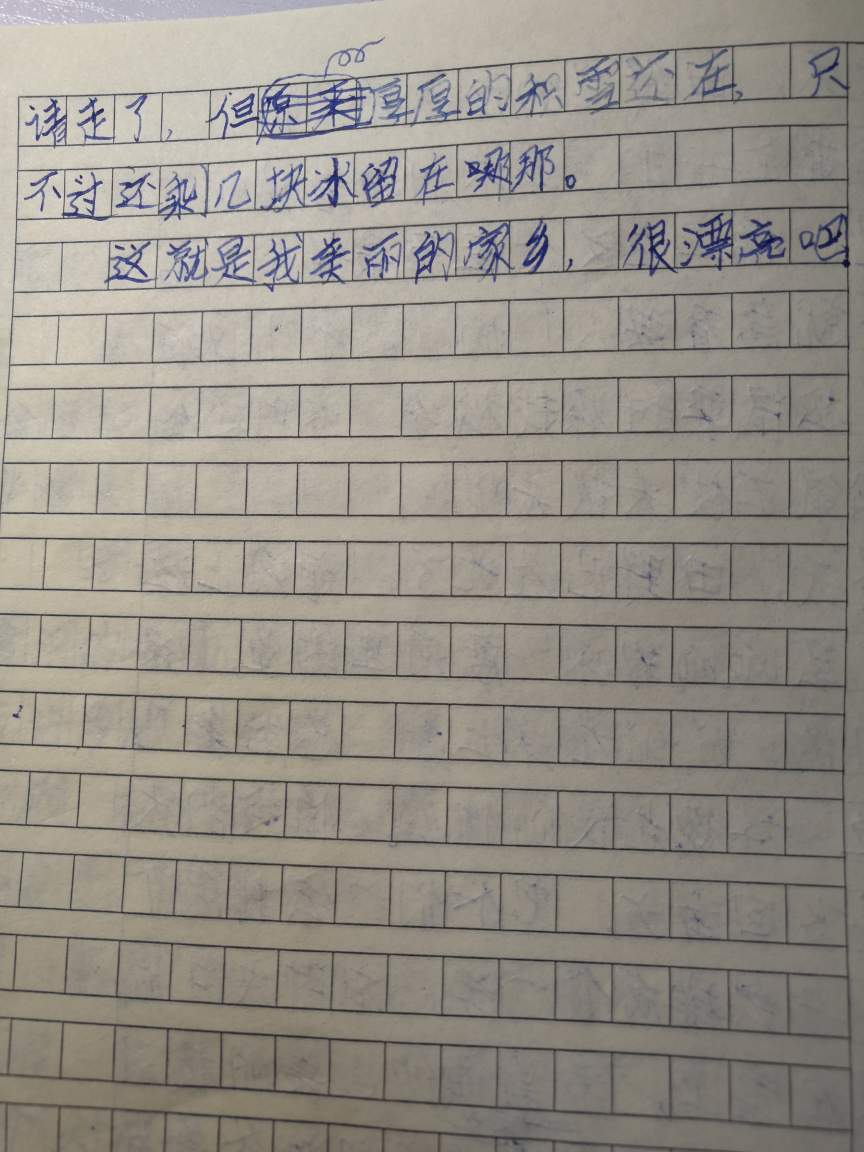 请走了，但厚厚的积雪还在，只
不过还剩几块冰留在哪那。
这就是我美丽的家乡，很漂亮吧！